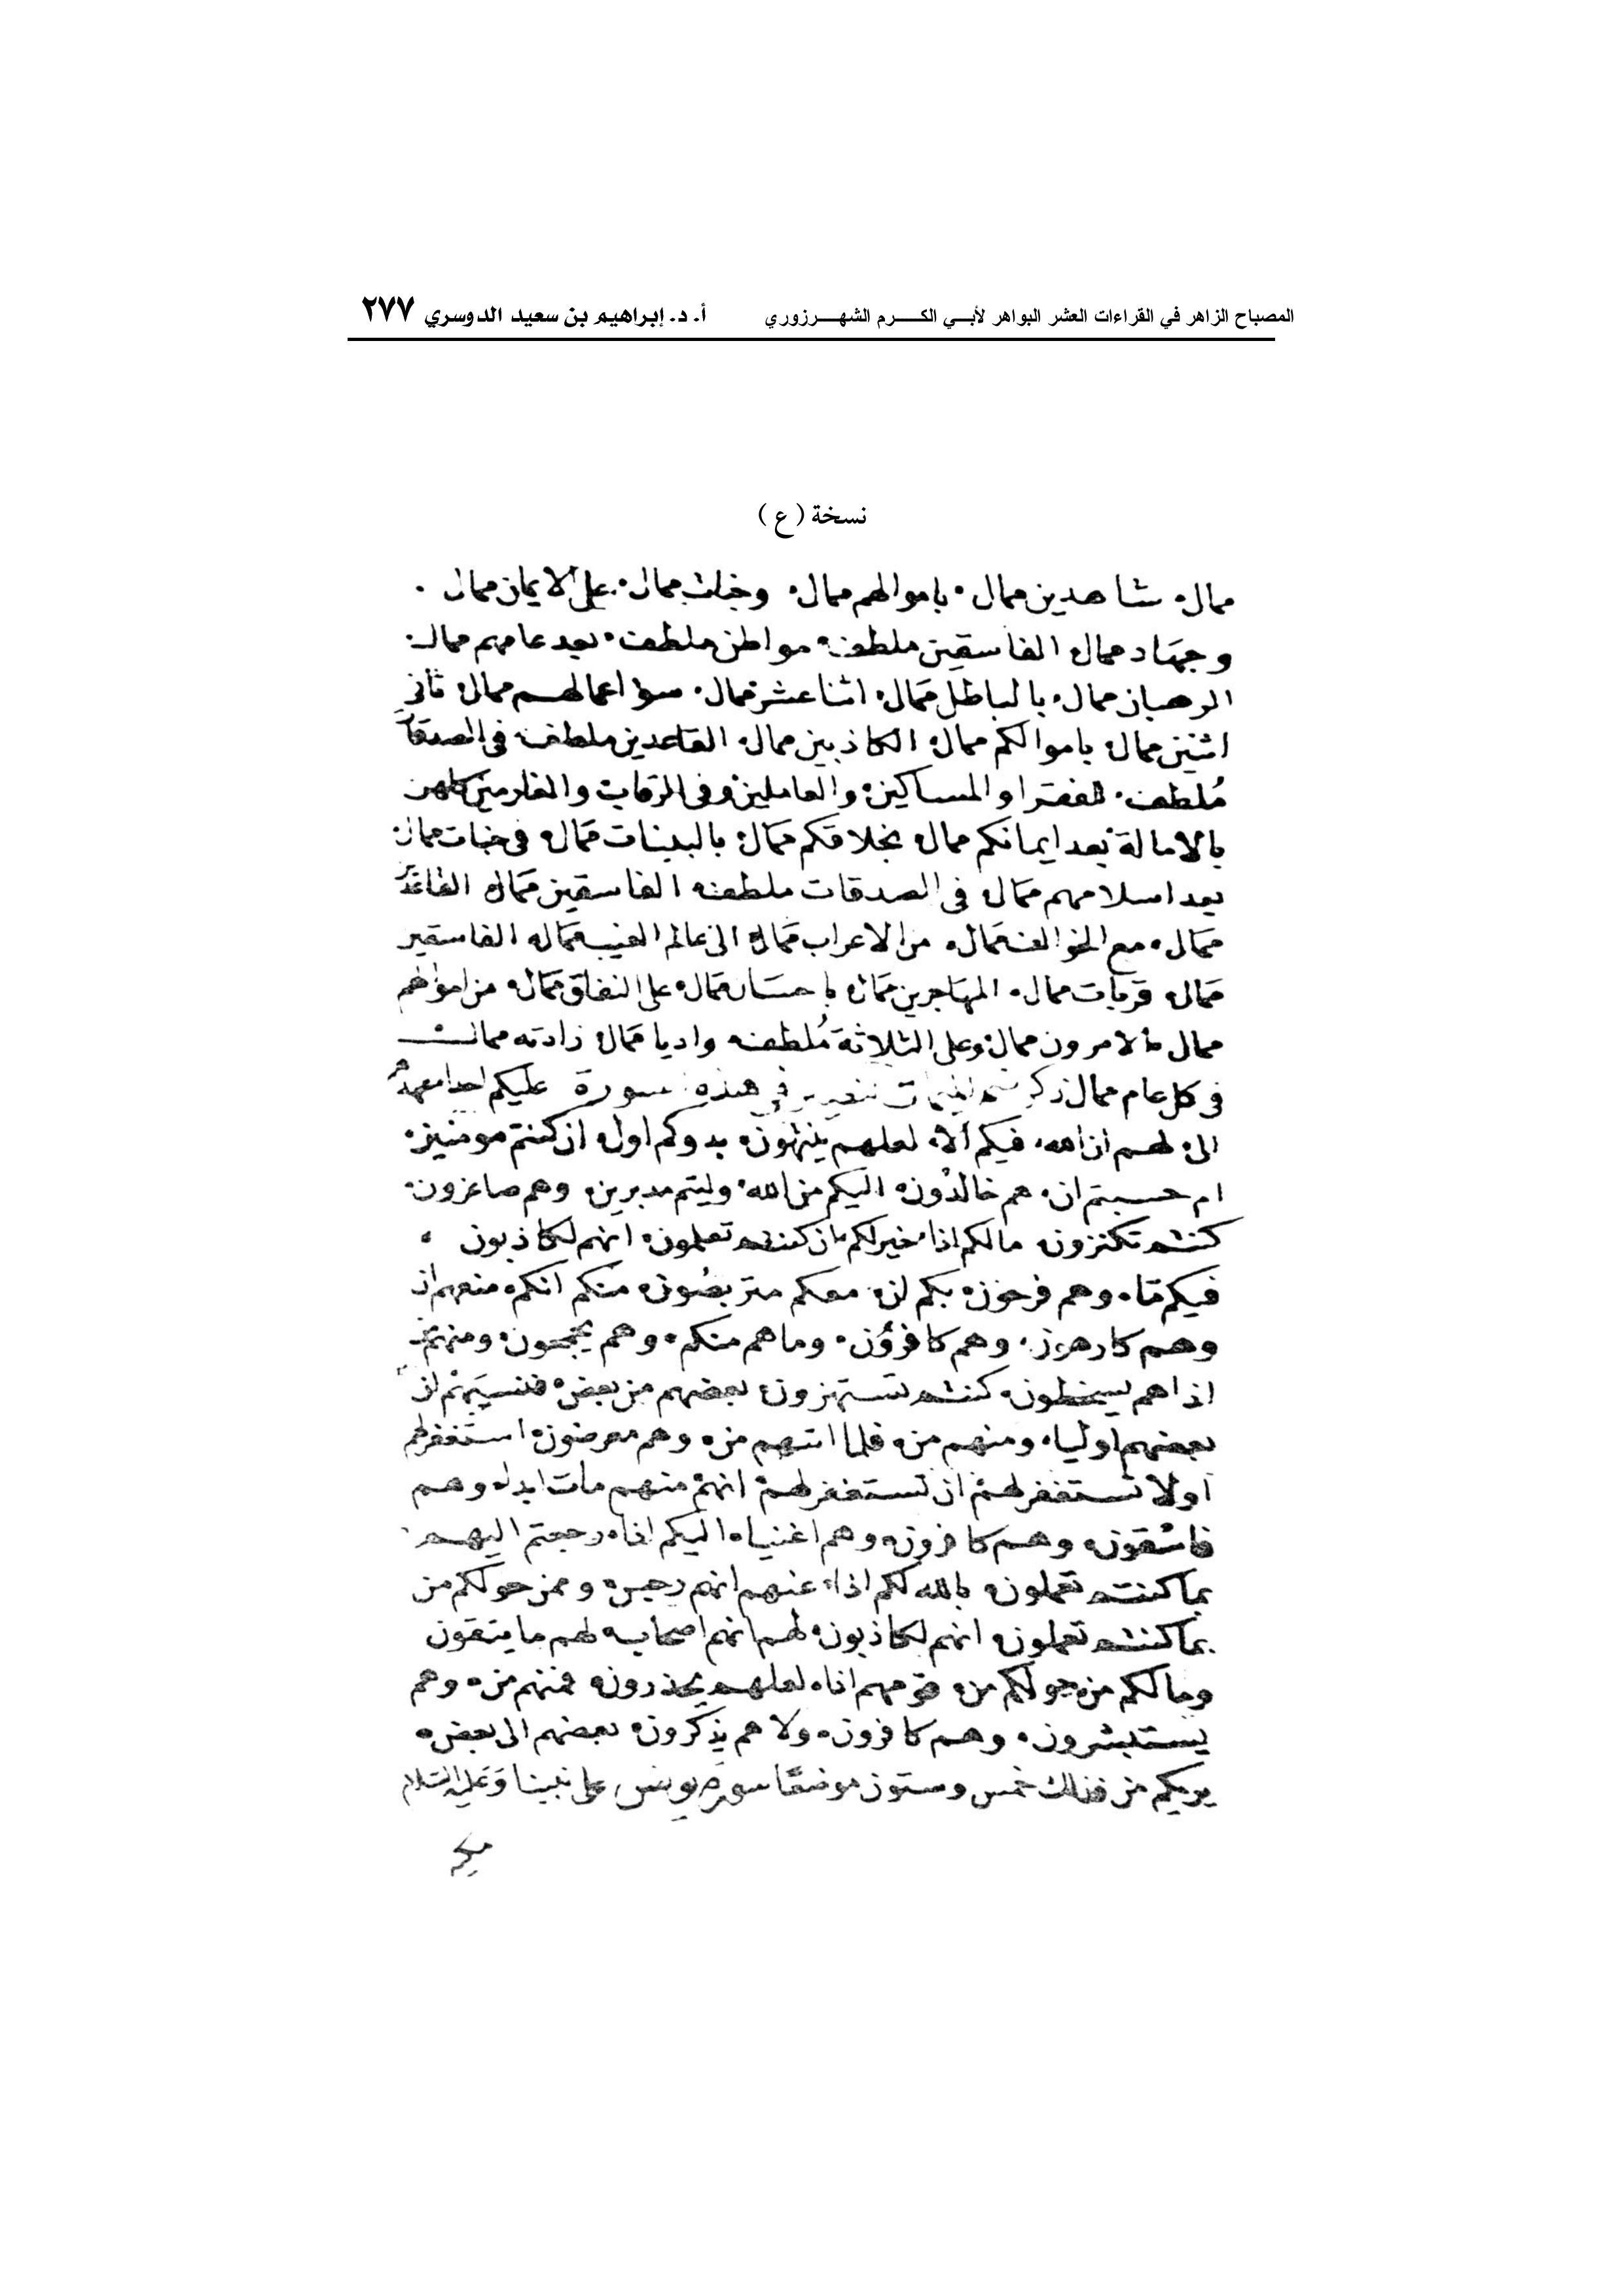 المصباح الزاهر في القراءات العشر البواهر لأبي الكرم الشهرزوري أ. د. إبراهيم بن سعيد الدوسري ٢٧٧
نسخة (ع)
ممال. شاهدين ممال. باموالهم ممال. وجنات ممال. على الايمان ممال.
وجهاد ممال الفاسقين ملطف. مواطن ملطف. بعد عامهم ممال.
الرهبان ممال. بالباطل ممال. اثنا عشر ممال. سوء اعمالهم ممال ثانى
اثنين ممال. باموالكم ممال الكاذبين ممال القاعدين ملطف. فى الصدقات
مُلطف. للفقرا والمساكين والعاملين وفى الرقاب والغارمين كلهن
بالامالة بعد ايمانكم ممال بخلاقكم ممال بالبينات ممال فى جنات ممال
بعد اسلامهم ممال فى الصدقات ملطفه الفاسقين ممال
ممال. مع الخوالف ممال. من الاعراب ممال الى عالم الغيب ممال الفاسقين
ممال قربات ممال. المهاجرين ممال باحسان ممال على النفاق ممال من اموالهم
ممال الامرون ممال وعلى الثلاثة مُلطفه واديا ممال زادته ممال
فى كل عام ممال ذكر فى هذه السورة عليكم احدا
الى لهم ان الله. فيكم الا. لعلهم ينتهون بدوكم اول ان كنتم مومنين.
ام حسبتم ان. هم خالدون اليكم من الله. وليتم مدبرين وهم صاغرون
كنتم تكنزون مالكم اذا خير لكم ان كنتم تعلمون انهم لكاذبون
فيكم ما. وهم فرحون بكم ان. معكم متربصون منكم انكم. منعهم ان
وهم كارهون. وهم كافرون. وما هم منكم. وهم يجمحون ومنهم من
اذا هم يسخطون كنتم تستهزون بعضهم من بعض فنسيهم ان
بعضهم اوليا. ومنهم من فلما اتهم من وهم معرضون استغفر لهم
اولا تستغفر لهم ان تستغفر لهم انهم منهم مات ابدا وهم
فاسقون وهم كافرون وهم اغنيا. اليكم اذا رجعتم اليهم
بما كنتم تعملون بالله لكم اذا عنهم انهم رجس وممن حولكم من
بما كنتم تعملون انهم لكاذبون لهم انهم اصحاب لهم ما يتقون
وما لكم من حولكم من قومهم اذا لعلهم يحذرون فمنهم من وهم
يستبشرون. وهم كافرون. ولا هم يذكرون بعضهم الى بعض
يريكم من فذلك خمس وستون موضعًا سورة يونس على نبينا وعليه السلام